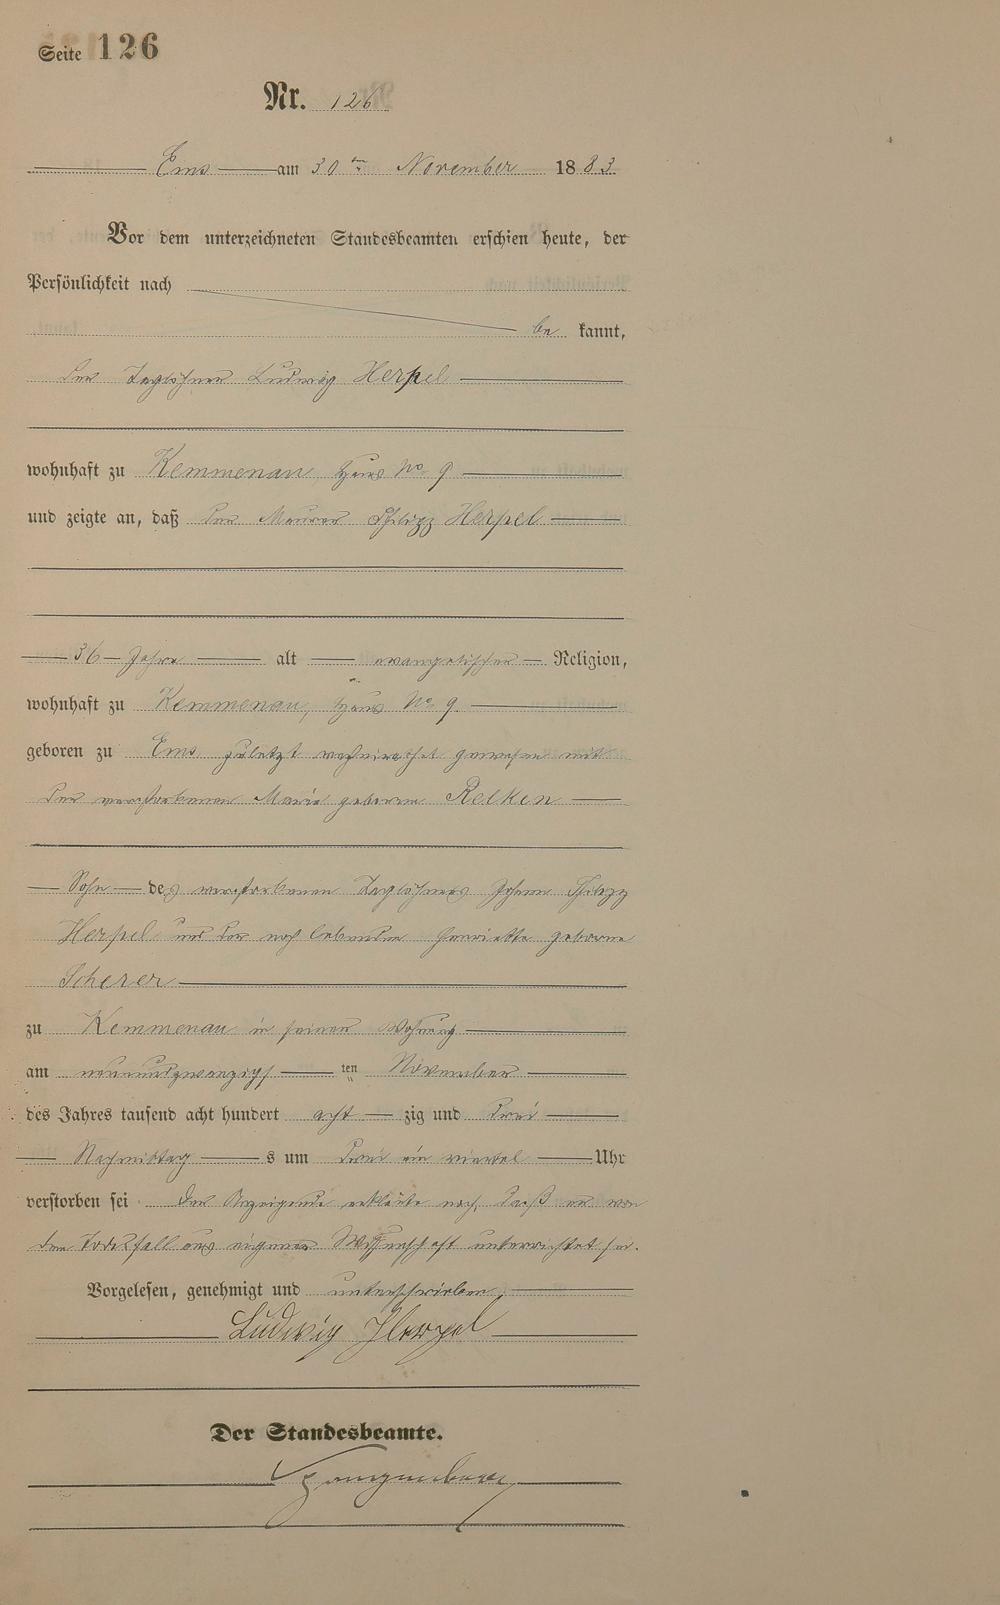 Seite 126
Nr. 126
Ems am 30ten November 1883
Vor dem unterzeichneten Standesbeamten erschien heute, der
Persönlichkeit nach
be kannt,
der Taglöhner Ludwig Herpel
wohnhaft zu Kemmenau, Haus No 9
und zeigte an, daß der Maurer Philipp Herpel
36 Jahre alt evangelischer Religion,
wohnhaft zu Kemmenau, Haus No 9
geboren zu Ems zuletzt verheirathet gewesen mit
der verstorbenen Marie geborne
Sohn des verstorbenen Taglöhners Johann Philipp
Herpel und der noch lebenden Henriette geborene
Scherer
zu Kemmenau in seiner Wohnung
am neunundzwanzigsten November
des Jahres tausend acht hundert acht zig und drei
Nachmittag s um drei ein viertel Uhr
verstorben sei. Der Anzeigende erklärte noch, daß er von
dem Todesfall aus eigener Wissenschaft unterrichtet sei.
Vorgelesen, genehmigt und unterschrieben.
Ludwig Herpel
Der Standesbeamte.